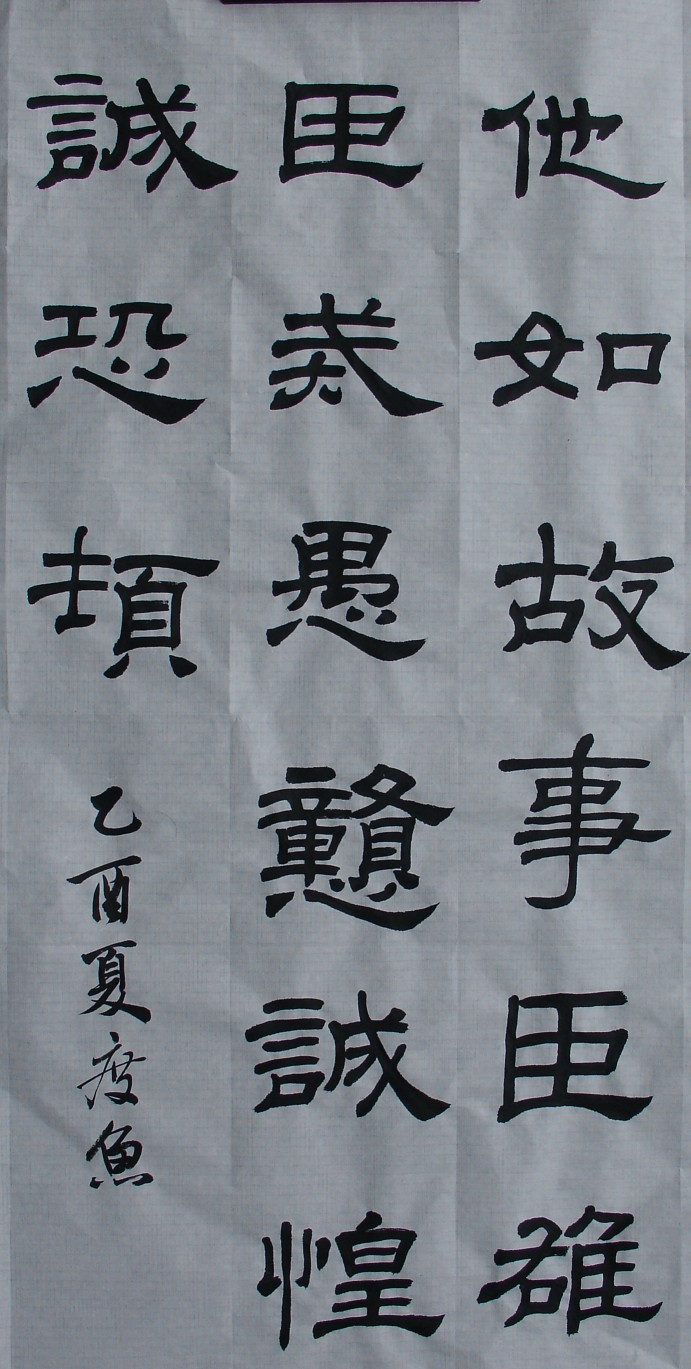 他如故事臣雄
臣戒愚戇誠惶
誠恐頓
乙酉夏度魚